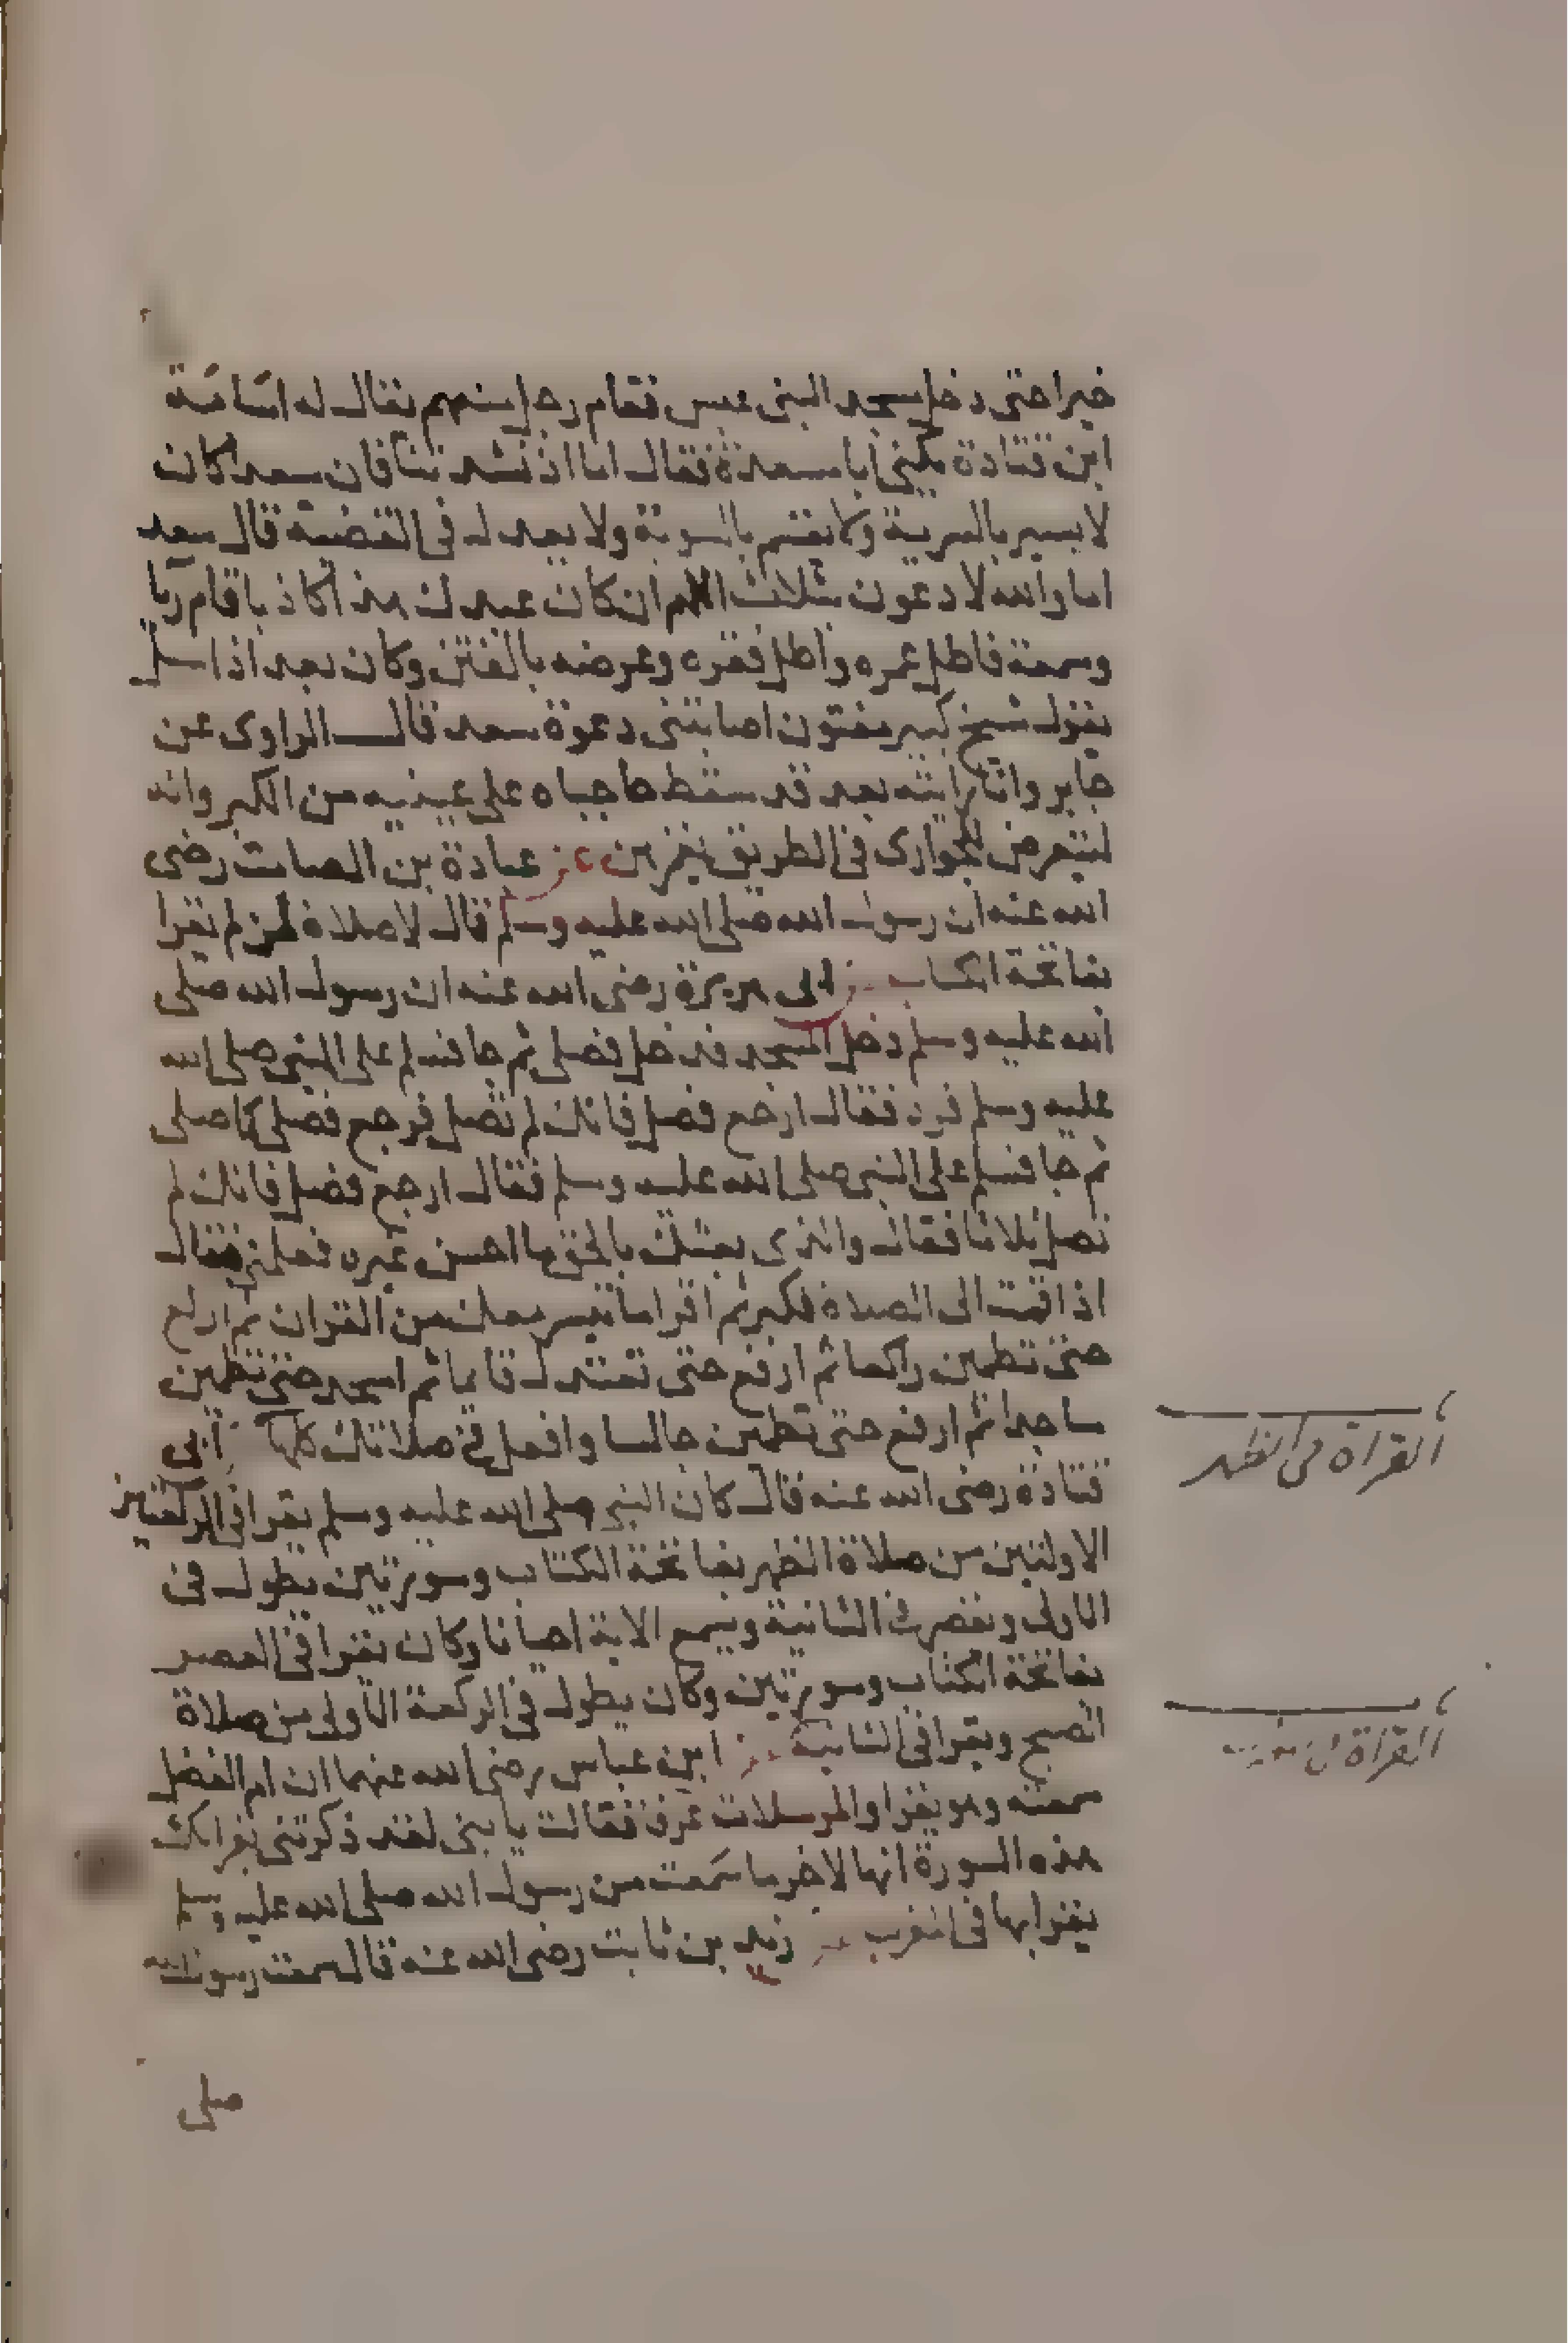 خيرا حتى دخل مسجد البنى عبس فقام رجل منهم يقال له اسامة
ابن قتادة يكنى ابا سعدة فقال اما اذ نشدتنا فان سعد كان
لا يسير بالسرية ولا يقسم بالسوية ولا يعدل فى القضية قال سعد
اما والله لادعون بثلاث اللهم ان كان عبدك هذا كاذبا قام ريا
وسمعة فاطل عمره واطل فقره وعرضه بالفتن وكان بعد اذا سئل
يقول شيخ كبير مفتون اصابتنى دعوة سعد قال الراوى عن
جابر وانا رايته بعد قد سقط حاجباه على عينيه من الكبر وانه
ليتعرض للجوارى فى الطريق يغمزهن عن عبادة بن الصامت رضى
الله عنه ان رسول الله صلى الله عليه وسلم قال لا صلاة لمن لم يقرا
بفاتحة الكتاب عن ابى هريرة رضى الله عنه ان رسول الله صلى
الله عليه وسلم دخل المسجد فدخل فصلى ثم جا فسلم على النبى صلى الله
عليه وسلم فرد فقال ارجع فصل فانك لم تصل فرجع فصلى كما صلى
ثم جا فسلم على النبى صلى الله عليه وسلم فقال ارجع فصل فانك لم
تصل ثلاثا فقال والذى بعثك بالحق ما احسن غيره فعلمنى فقال
اذا قمت الى الصلاة فكبر ثم اقرا ما تيسر معك من القران ثم اركع
حتى تطمين راكعا ثم ارفع حتى تعتدل قايما ثم اسجد حتى تطمين
ساجدا ثم ارفع حتى تطمين جالسا وافعل فى صلاتك كلها ابى
قتادة رضى الله عنه قال كان النبى صلى الله عليه وسلم يقرا فى الركعتين
الاولتين من صلاة الظهر بفاتحة الكتاب وسورتين يطول فى
الاولى ويقصر فى الثانية ويسمع الاية احيانا وكان يقرا فى العصر
بفاتحة الكتاب وسورتين وكان يطول فى الركعة الاولى من صلاة
الصبح ويقرا فى الثانية عن ابن عباس رضى الله عنهما ان ام الفضل
سمعته وهو يقرا والمرسلات عرفا فقالت يا بنى لقد ذكرتنى بقراتك
هذه السورة انها لاخر ما سمعت من رسول الله صلى الله عليه وسلم
يقرا بها فى المغرب عن زيد بن ثابت رضى الله عنه قال سمعت رسول الله
صلى
القراة فى الظهر
القراة فى